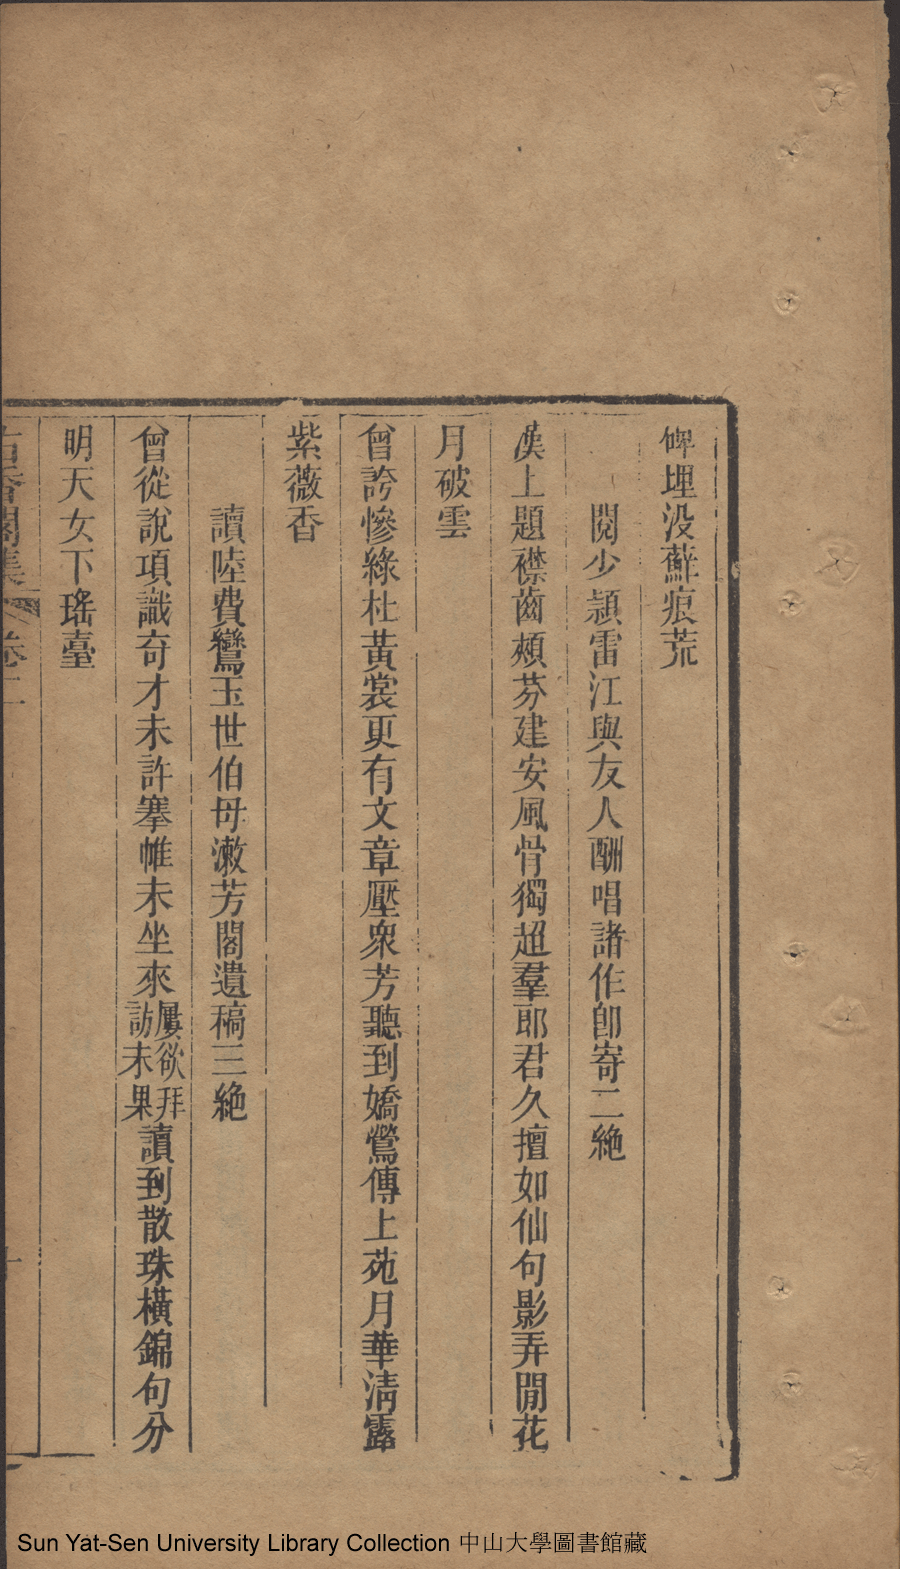 碑埋没蘚痕荒
閱少潁雷江與友人酬唱諸作卽寄二絶
漢上題襟齒頰芬建安風骨獨超羣郎君久擅如仙句影弄閒花
月破雲
曾誇慘綠杜黃裳更有文章壓衆芳聽到嬌鶯傳上苑月華清露
紫薇香
讀陸費鸞玉世伯母漱芳閣遺稿三絶
曾從說項識奇才未許搴帷未坐來屢欲拜訪未果讀到散珠橫錦句分
明天女下瑤臺
古香閣集 卷二 十
Sun Yat-Sen University Library Collection 中山大學圖書館藏